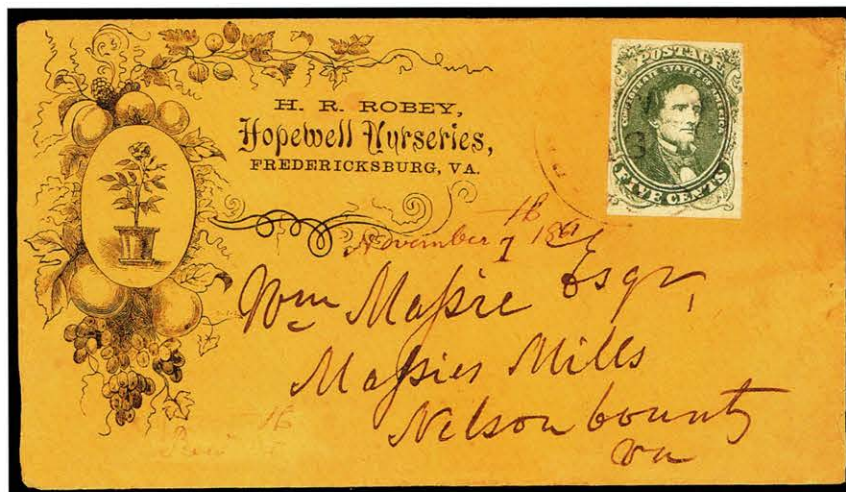 H. R. ROBEY,
Hopewell Nurseries,
FREDERICKSBURG, VA.
POSTAGE
CONFEDERATE STATES OF AMERICA
FIVE CENTS
November 7 1861
Wm Maſsie Esqr,
Maſsies Mills
Nelson County
Va